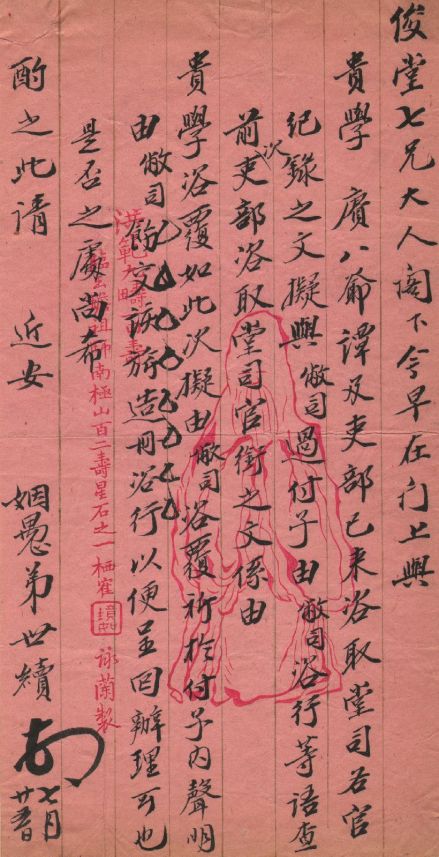 俊堂七兄大人閣下今早在门上與
貴學 賡八爺譚及吏部已来咨取堂司各官
紀錄之文擬與敝司過付子由敝司咨行等語查
前次吏部咨取堂司官銜之文係由
貴學咨覆如此次擬由敝司咨覆祈於付子内聲明
由敝司飭交該旂造冊咨行以便呈囘辦理可也
是否之處尚希
酌之此請 近安
姻愚弟世續
七月
南極山百二壽星石之一 栖寉
詠蘭製